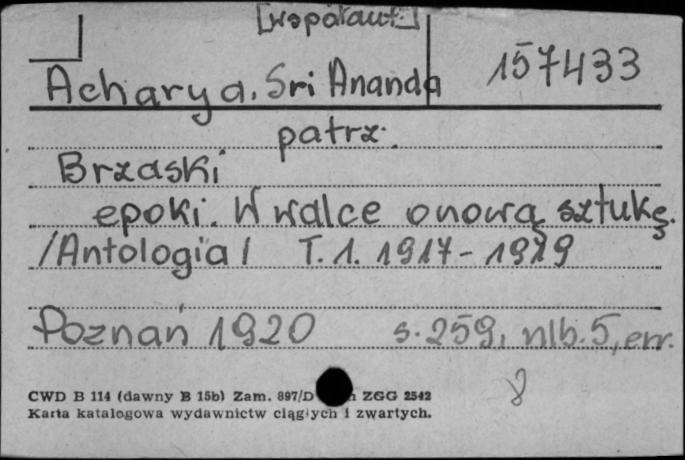 [współaut.]
Acharya. Sri Ananda 157433
patrz:
Brzaski
epoki. W walce o nową sztukę.
/Antologia/ T. 1. 1917-1919
Poznań 1920 s. 259, nlb. 5, err.
CWD B 114 (dawny B 15b) Zam. 897/D ZGG 2542
Karta katalogowa wydawnictw ciągłych i zwartych.